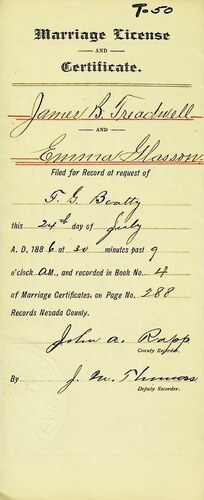 T-50
Marriage License
AND
Certificate.
James B. Treadwell
AND
Emma Glasson
Filed for Record at request of
F. G. Beatty
this 24th day of July
A. D. 1886 at 30 minutes past 9
o'clock A.M., and recorded in Book No. 4
of Marriage Certificates, on Page No. 288
Records Nevada County.
John A. Rapp
County Recorder.
By J. M. Thomas
Deputy Recorder.